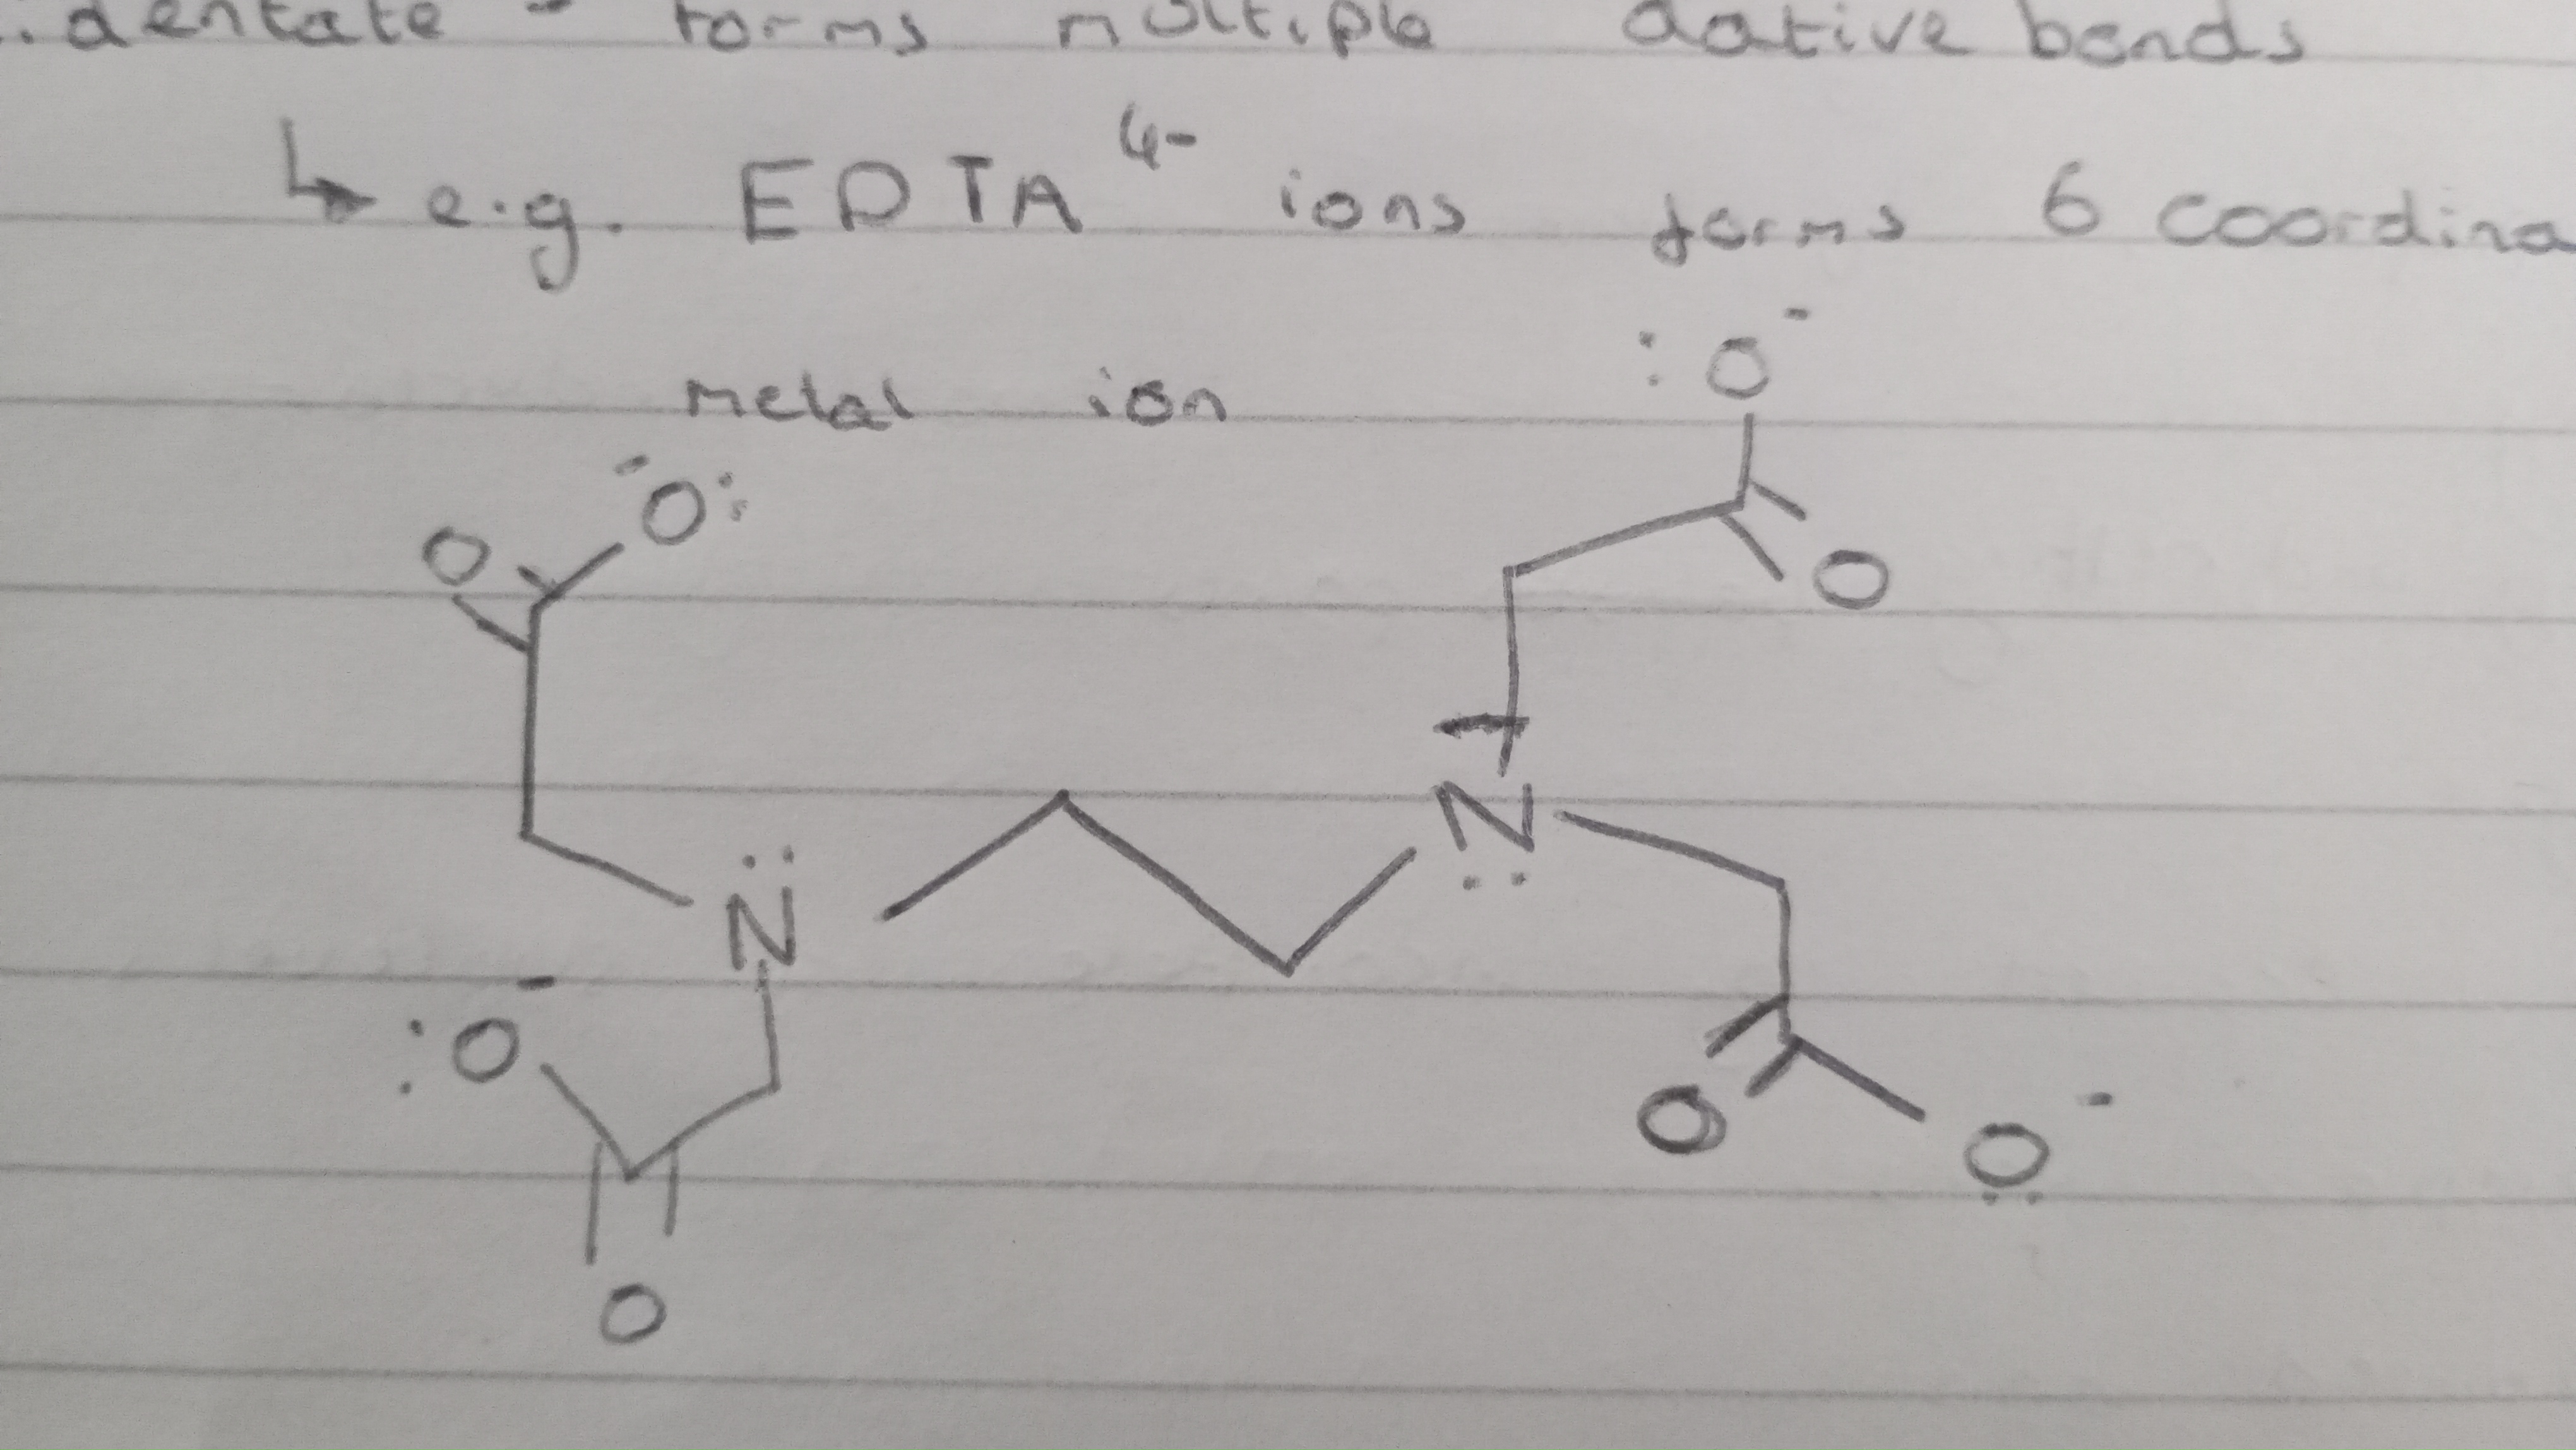 .dentate - forms multiple dative bonds
↳ e.g. EDTA⁴⁻ ions forms 6 coordina
metal ion
:O⁻
⁻O:
O
O
N̈
N̈
⁻
:O
O
O⁻
O